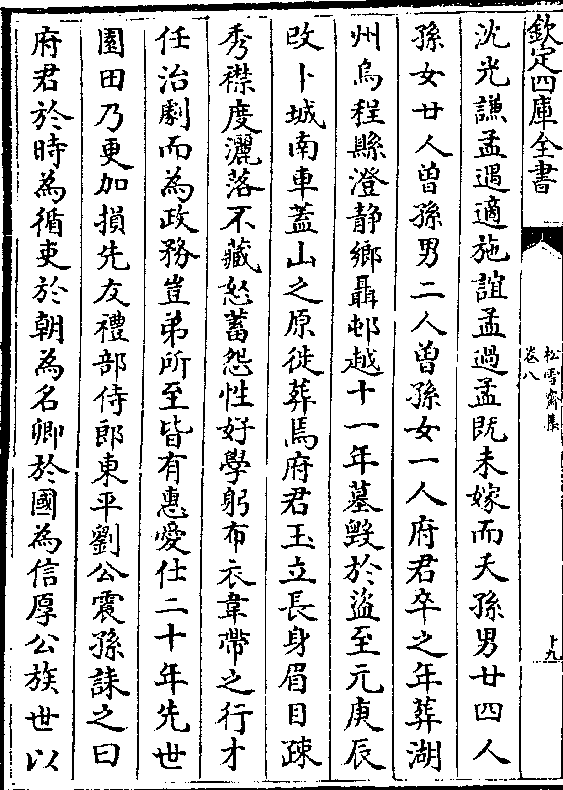 欽定四庫全書
松雪齋集
卷八
十九
沈光謙孟遇適施誼孟過孟既未嫁而夭孫男廿四人
孫女廿人曾孫男二人曾孫女一人府君卒之年葬湖
州烏程縣澄静鄉聶邨越十一年墓毀於盜至元庚辰
改卜城南車葢山之原徙葬焉府君玉立長身眉目疎
秀襟度灑落不藏怒蓄怨性好學躬布衣韋帶之行才
任治劇而為政務豈弟所至皆有惠愛仕二十年先世
園田乃更加損先友禮部侍郎東平劉公震孫誄之曰
府君於時為循吏於朝為名卿於國為信厚公族世以